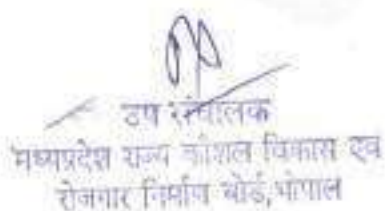 उप संचालक
मध्यप्रदेश राज्य कौशल विकास एवं
रोजगार निर्माण बोर्ड, भोपाल